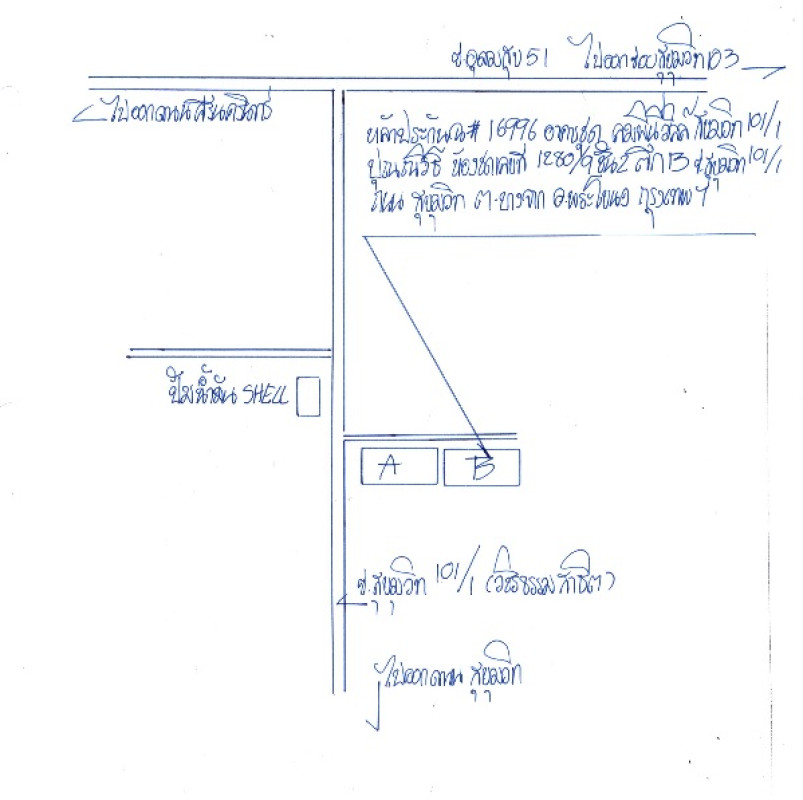 ซ.อุดมสุข 51 ไปออกซอยสุขุมวิท 103
ไปออกถนนศรีนครินทร์
หลักประกัน# 16996 อาคารชุด สุขุมวิท 101/1
ปุณณวิถี ห้องชุดเลขที่ 1280/9 ชั้น 2 ตึก B ซ.สุขุมวิท 101/1
ถนน สุขุมวิท ต.บางจาก อ.พระโขนง กรุงเทพฯ
ปั๊มน้ำมัน SHELL
A B
ซ.สุขุมวิท 101/1 (วชิรธรรมสาธิต)
ไปออกถนน สุขุมวิท